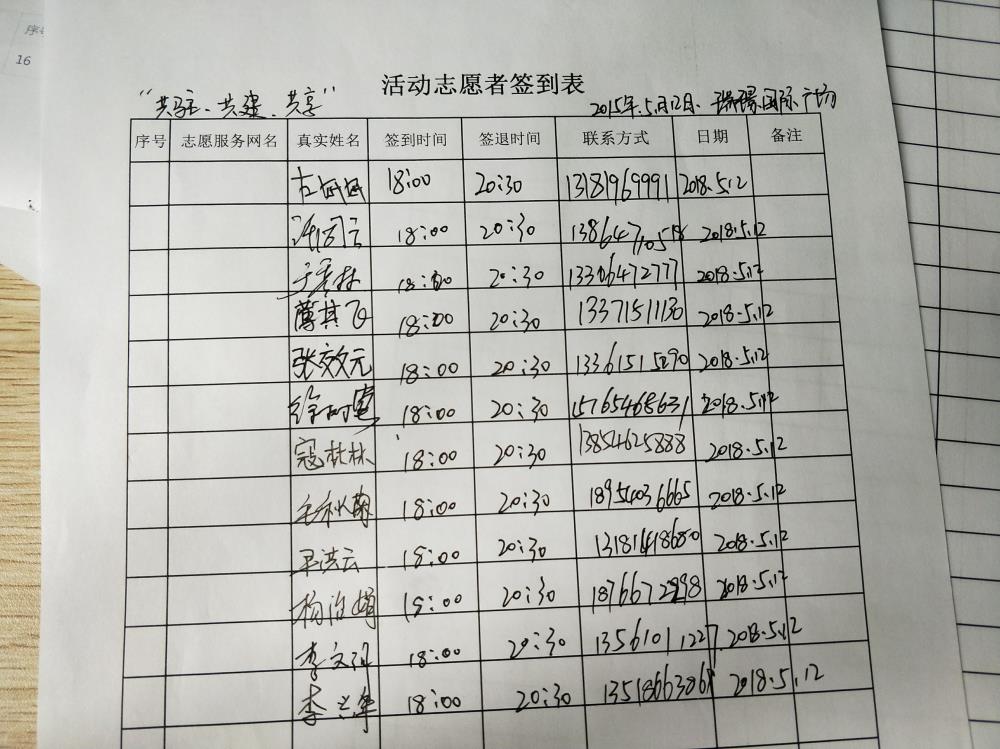 序号
16
活动志愿者签到表
"共驻、共建、共享" 2015年.5月12日. 国际广场
序号 志愿服务网名 真实姓名 签到时间 签退时间 联系方式 日期 备注
18:00 20:30 13181969991 2018.5.12
18:00 20:30 2018.5.12
18:00 20:30 13306472777 2018.5.12
其飞 18:00 20:30 13371511130 2018.5.12
张效元 18:00 20:30 13361515290 2018.5.12
徐 18:00 20:30 15765468631 2018.5.12
寇林 18:00 20:30 13854625888 2018.5.12
毛秋菊 18:00 20:30 18954036665 2018.5.12
洪云 18:00 20:30 13181418680 2018.5.12
杨 18:00 20:30 2018.5.12
李文 18:00 20:30 13561011227 2018.5.12
李 18:00 20:30 2018.5.12